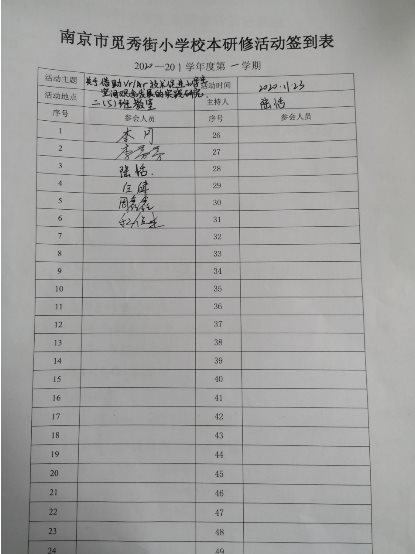 南京市觅秀街小学校本研修活动签到表
2020—201学年度第一学期
活动主题 关于借助Vr/Ar技术促进小学生空间观念发展的实践研究 活动时间 2020.11.23
活动地点 二(5)班教室 主持人 陆恬
序号 参会人员 序号 参会人员
1 李丹 26
2 李芳芳 27
3 陆恬 28
4 29
5 周鑫鑫 30
6 31
7 32
8 33
9 34
10 35
11 36
12 37
13 38
14 39
15 40
16 41
17 42
18 43
19 44
20 45
21 46
22 47
23 48
24 49